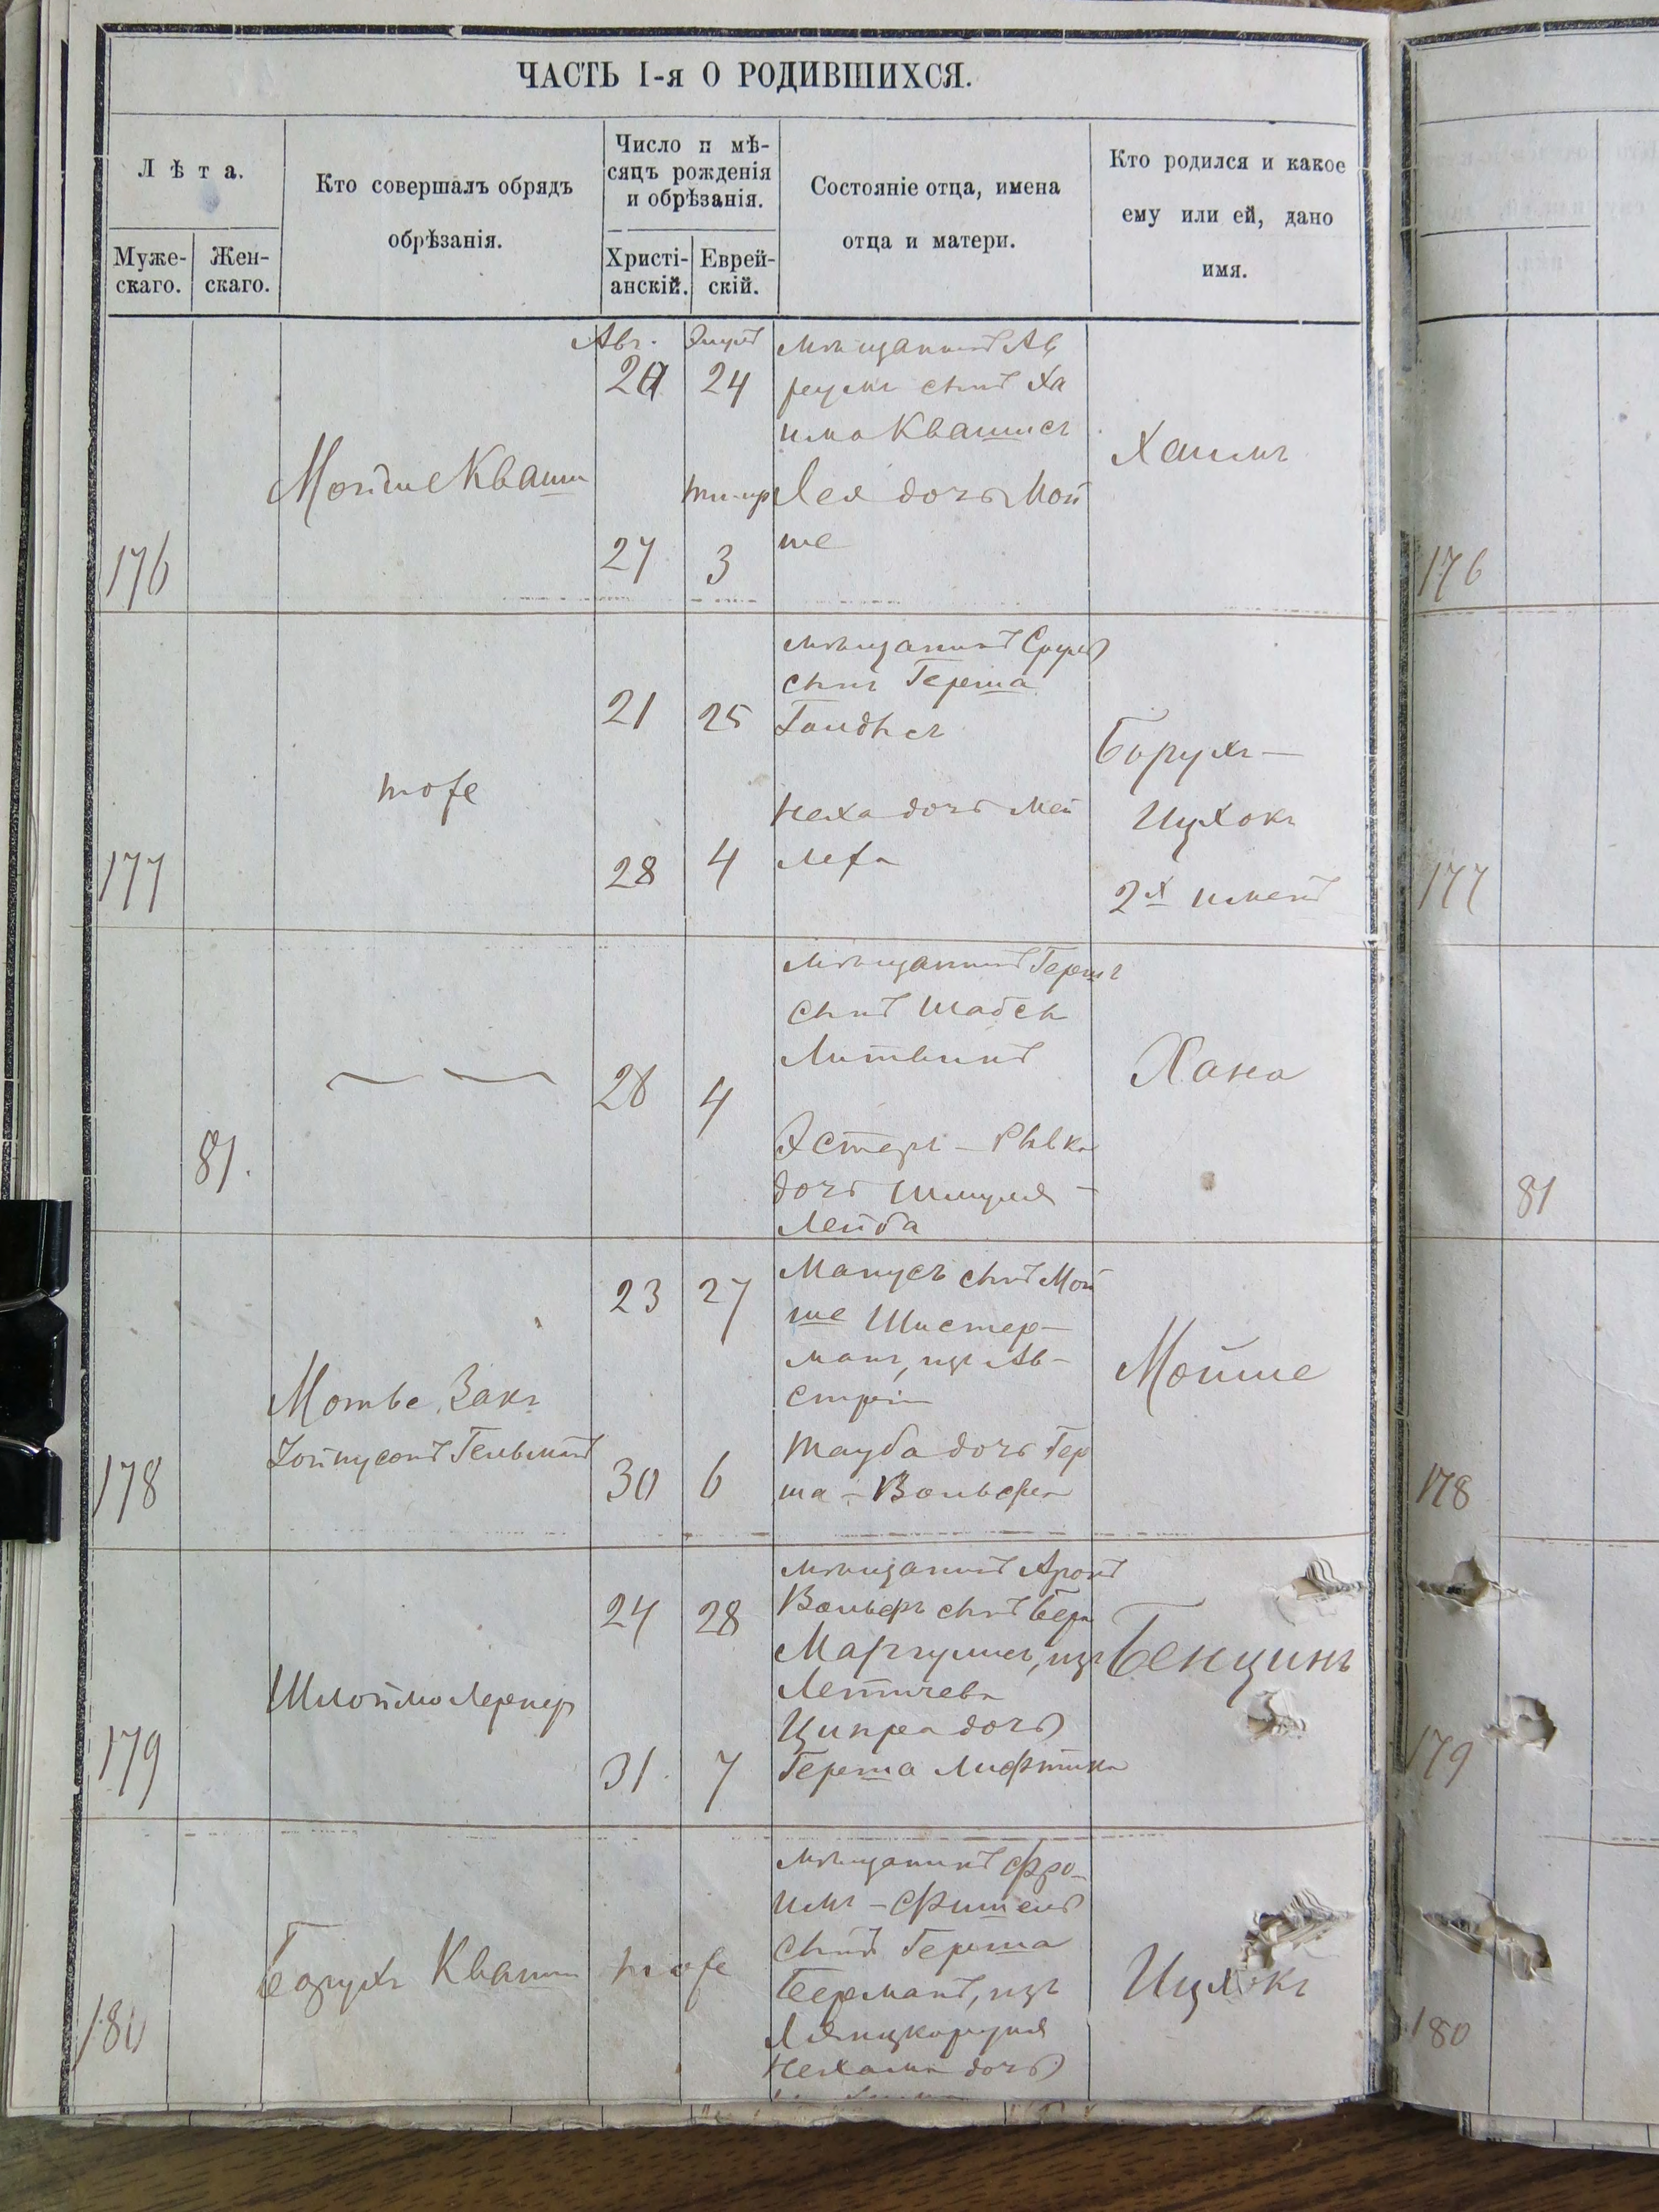 ЧАСТЬ I-я О РОДИВШИХСЯ.
Лѣта.
Муже-
скаго.
Жен-
скаго.
Кто совершалъ обрядъ
обрѣзанія.
Число и мѣ-
сяцъ рожденія
и обрѣзанія.
Христі-
анскій.
Еврей-
скій.
Состояніе отца, имена
отца и матери.
Кто родился и какое
ему или ей, дано
имя.
176
Мойше Кваша
Авг.
20
27
Элулъ
24
Тишр
3
мѣщанинъ Ав
румъ сынъ Ха
има Квашисъ
Лея дочь Мой
ше
Хаимъ
176
177
тоже
21
28
25
4
мѣщанинъ Сруль
сынъ Герша
Гандысъ
Неха дочь Мей
леха
Борухъ-
Ицхокъ
2х именъ
177
81.
28
4
мѣщанинъ Гершъ
сынъ Шабсы
Литвинъ
Эстеръ-Рывка
дочь Шмуля-
Лейба
Хана
81
178
Мотье Закъ
Гельманъ
23
30
27
6
Манусъ сынъ Мой
ше Шистер-
манъ, изъ Ав-
стріи
Тауба дочь Гер
ша-Вольфа
Мойше
178
179
Шлоймо Лернер
24
31.
28
7
мѣщанинъ Аронъ
Вольфъ сынъ Бера
Маргулисъ, изъ
Летичева
Ципра дочь
Герша
Бенцинъ
179
180
Борухъ Кваша
тоже
мѣщанинъ Фро-
имъ-Фишель
сынъ Герша
Берманъ, изъ
Лянцкоруня
Нехама дочь
Ицхокъ
180